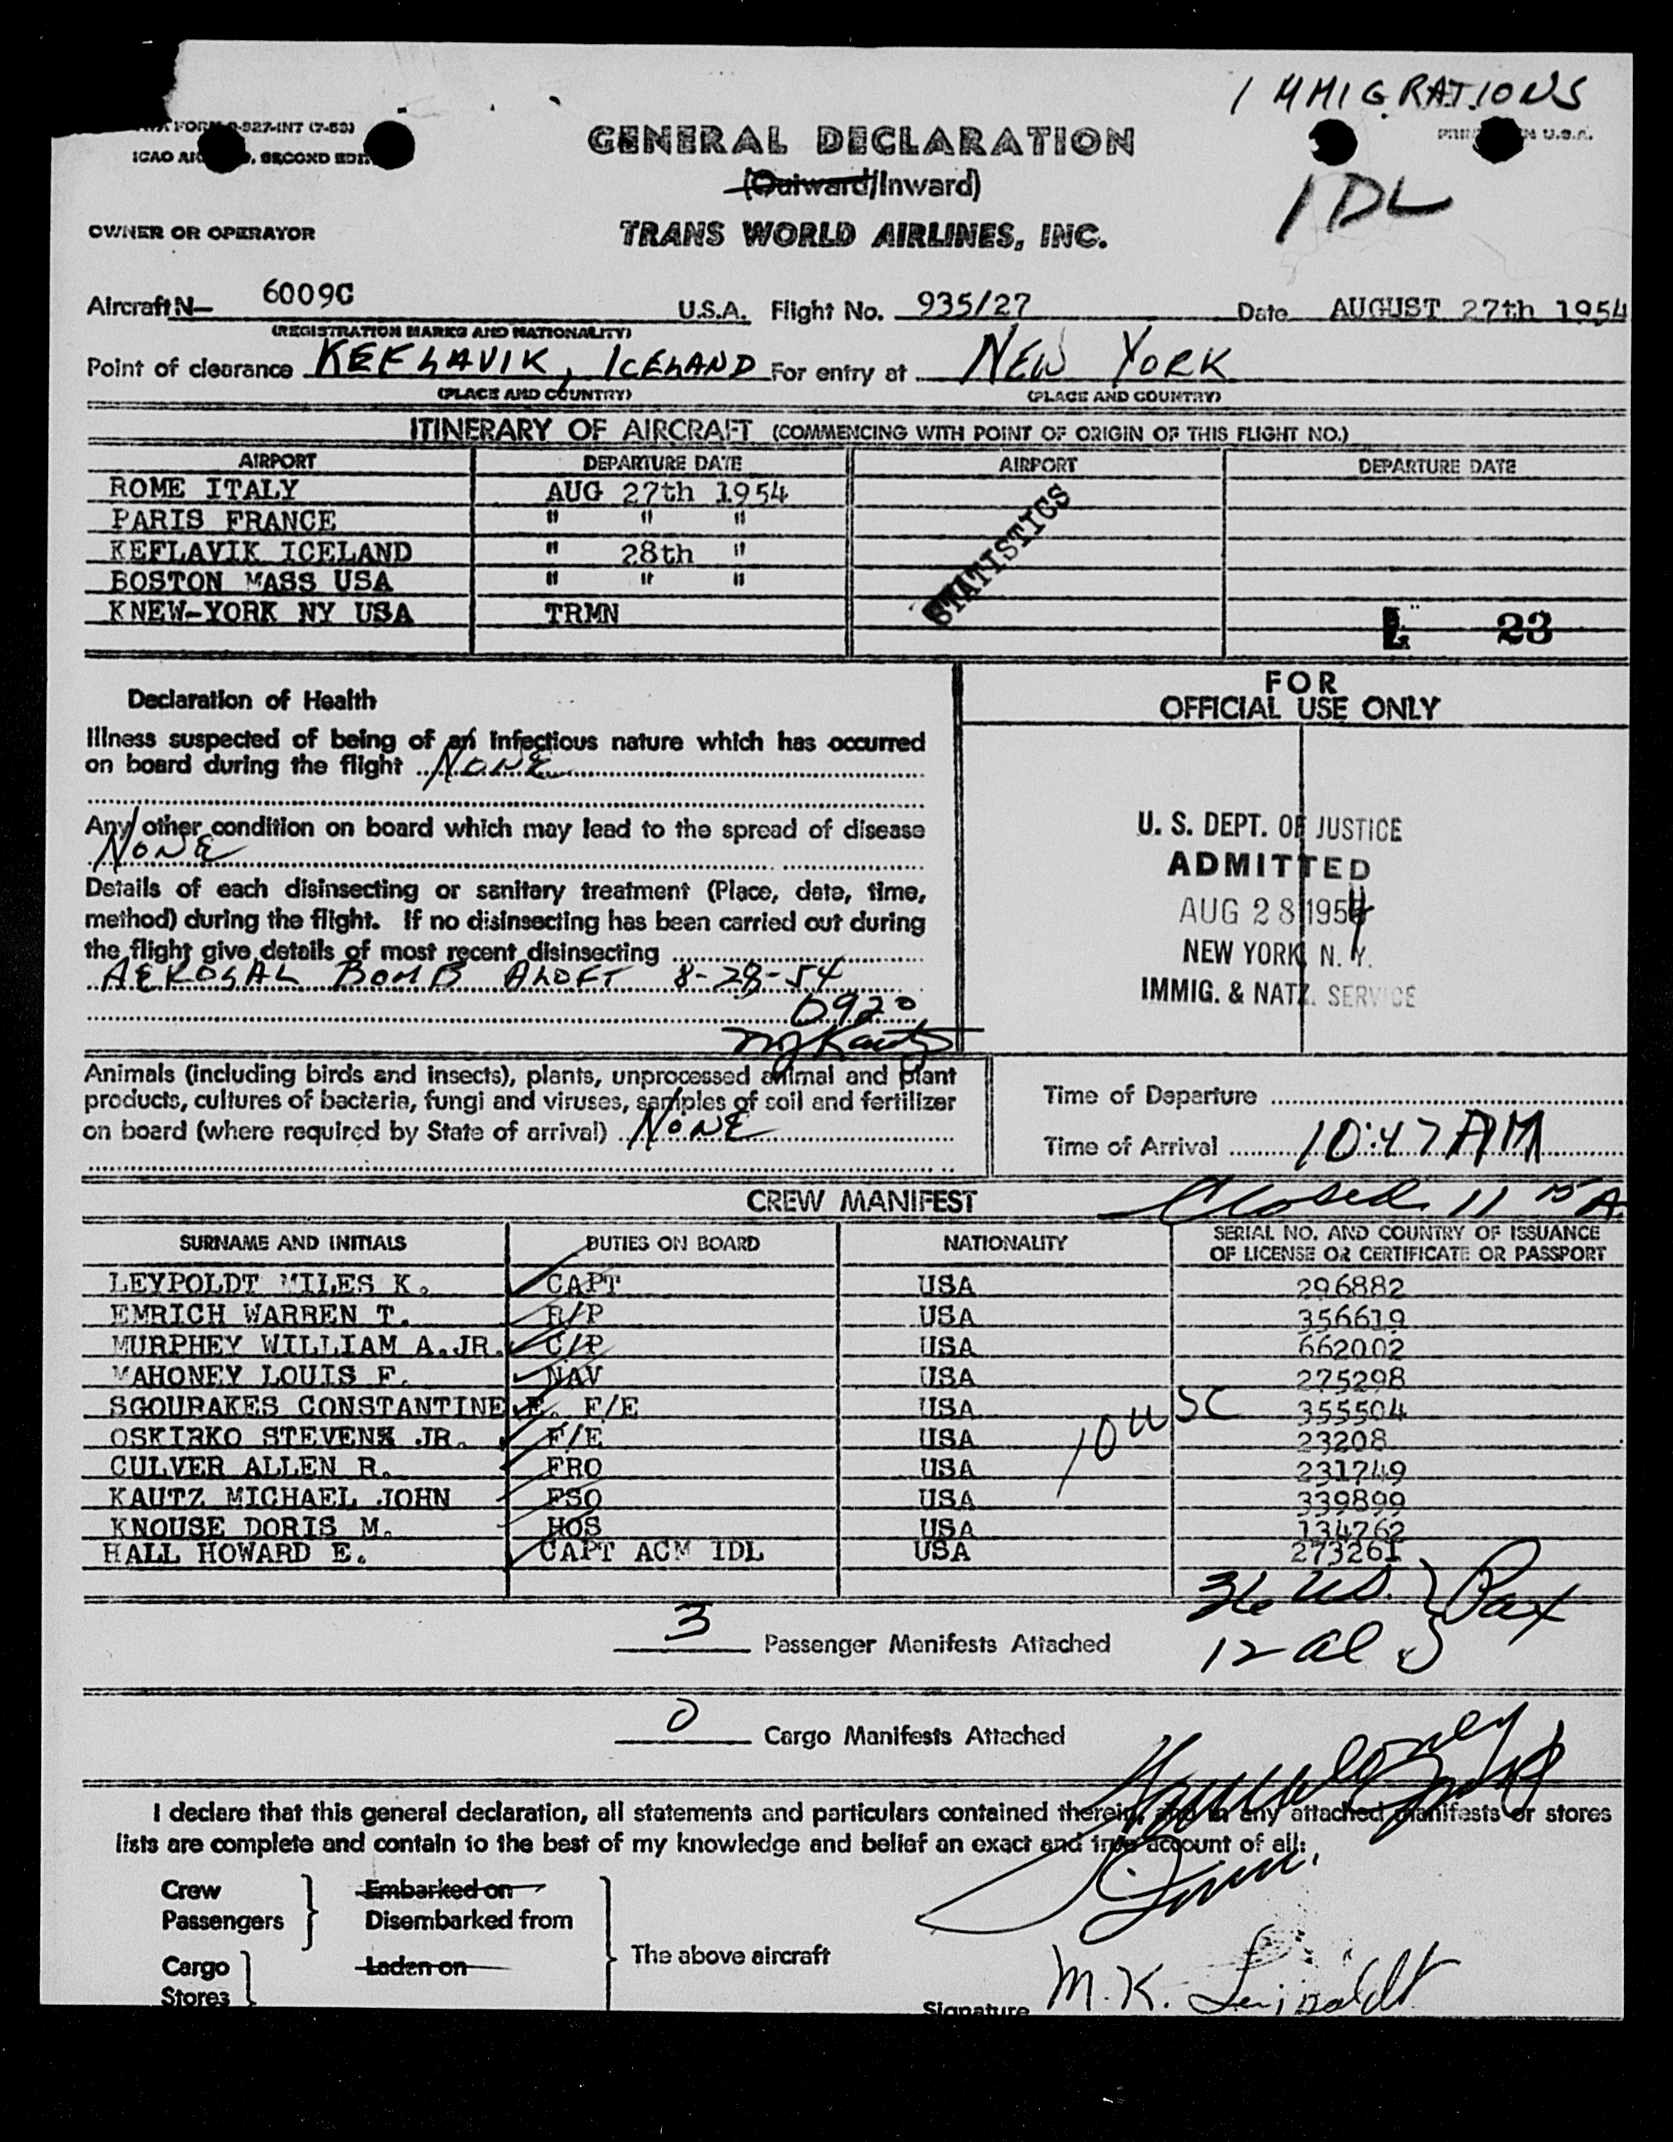 IMMIGRATIONS
FORM -927-INT (7-53)
GENERAL DECLARATION
PRIN IN U.S.A.
ICAO AN , SECOND EDI
(Outward/Inward)
IDL
OWNER OR OPERATOR
TRANS WORLD AIRLINES, INC.
Aircraft N— 6009C U.S.A. Flight No. 935/27 Date AUGUST 27th 1954
(REGISTRATION MARKS AND NATIONALITY)
Point of clearance KEFLAVIK, ICELAND For entry at NEW YORK
(PLACE AND COUNTRY) (PLACE AND COUNTRY)
ITINERARY OF AIRCRAFT (COMMENCING WITH POINT OF ORIGIN OF THIS FLIGHT NO.)
AIRPORT DEPARTURE DATE AIRPORT DEPARTURE DATE
ROME ITALY AUG 27th 1954
PARIS FRANCE " " "
KEFLAVIK ICELAND " 28th "
BOSTON MASS USA " " "
KNEW-YORK NY USA TRMN
STATISTICS
23
Declaration of Health
FOR
OFFICIAL USE ONLY
Illness suspected of being of an infectious nature which has occurred
on board during the flight NONE
Any other condition on board which may lead to the spread of disease
NONE
Details of each disinsecting or sanitary treatment (Place, date, time,
method) during the flight. If no disinsecting has been carried out during
the flight give details of most recent disinsecting
AEROSAL BOMB ALOFT 8-28-54
0920
MJ Kautz
U. S. DEPT. OF JUSTICE
ADMITTED
AUG 28 1954
NEW YORK, N. Y.
IMMIG. & NATZ. SERVICE
Animals (including birds and insects), plants, unprocessed animal and plant
products, cultures of bacteria, fungi and viruses, samples of soil and fertilizer
on board (where required by State of arrival) NONE
Time of Departure
Time of Arrival 10:47 AM
CREW MANIFEST
Closed 11 15 A.
SURNAME AND INITIALS DUTIES ON BOARD NATIONALITY SERIAL NO. AND COUNTRY OF ISSUANCE
OF LICENSE OR CERTIFICATE OR PASSPORT
LEYPOLDT MILES K. CAPT USA 296882
EMRICH WARREN T. R/P USA 356619
MURPHEY WILLIAM A.JR. C/P USA 662002
MAHONEY LOUIS F. NAV USA 275298
SGOURAKES CONSTANTINE E. F/E USA 355504
OSKIRKO STEVENX JR. F/E USA 23208
CULVER ALLEN R. FRO USA 231749
KAUTZ MICHAEL JOHN FSO USA 339899
KNOUSE DORIS M. HOS USA 134762
HALL HOWARD E. CAPT ACM IDL USA 273261
10 USC
36 US. } Pax
12 al
3 Passenger Manifests Attached
0 Cargo Manifests Attached
I declare that this general declaration, all statements and particulars contained therein, and in any attached manifests or stores
lists are complete and contain to the best of my knowledge and belief an exact and true account of all:
Crew
Passengers
Embarked on
Disembarked from
Cargo
Stores
Laden on
The above aircraft
Signature M.K. Leypoldt